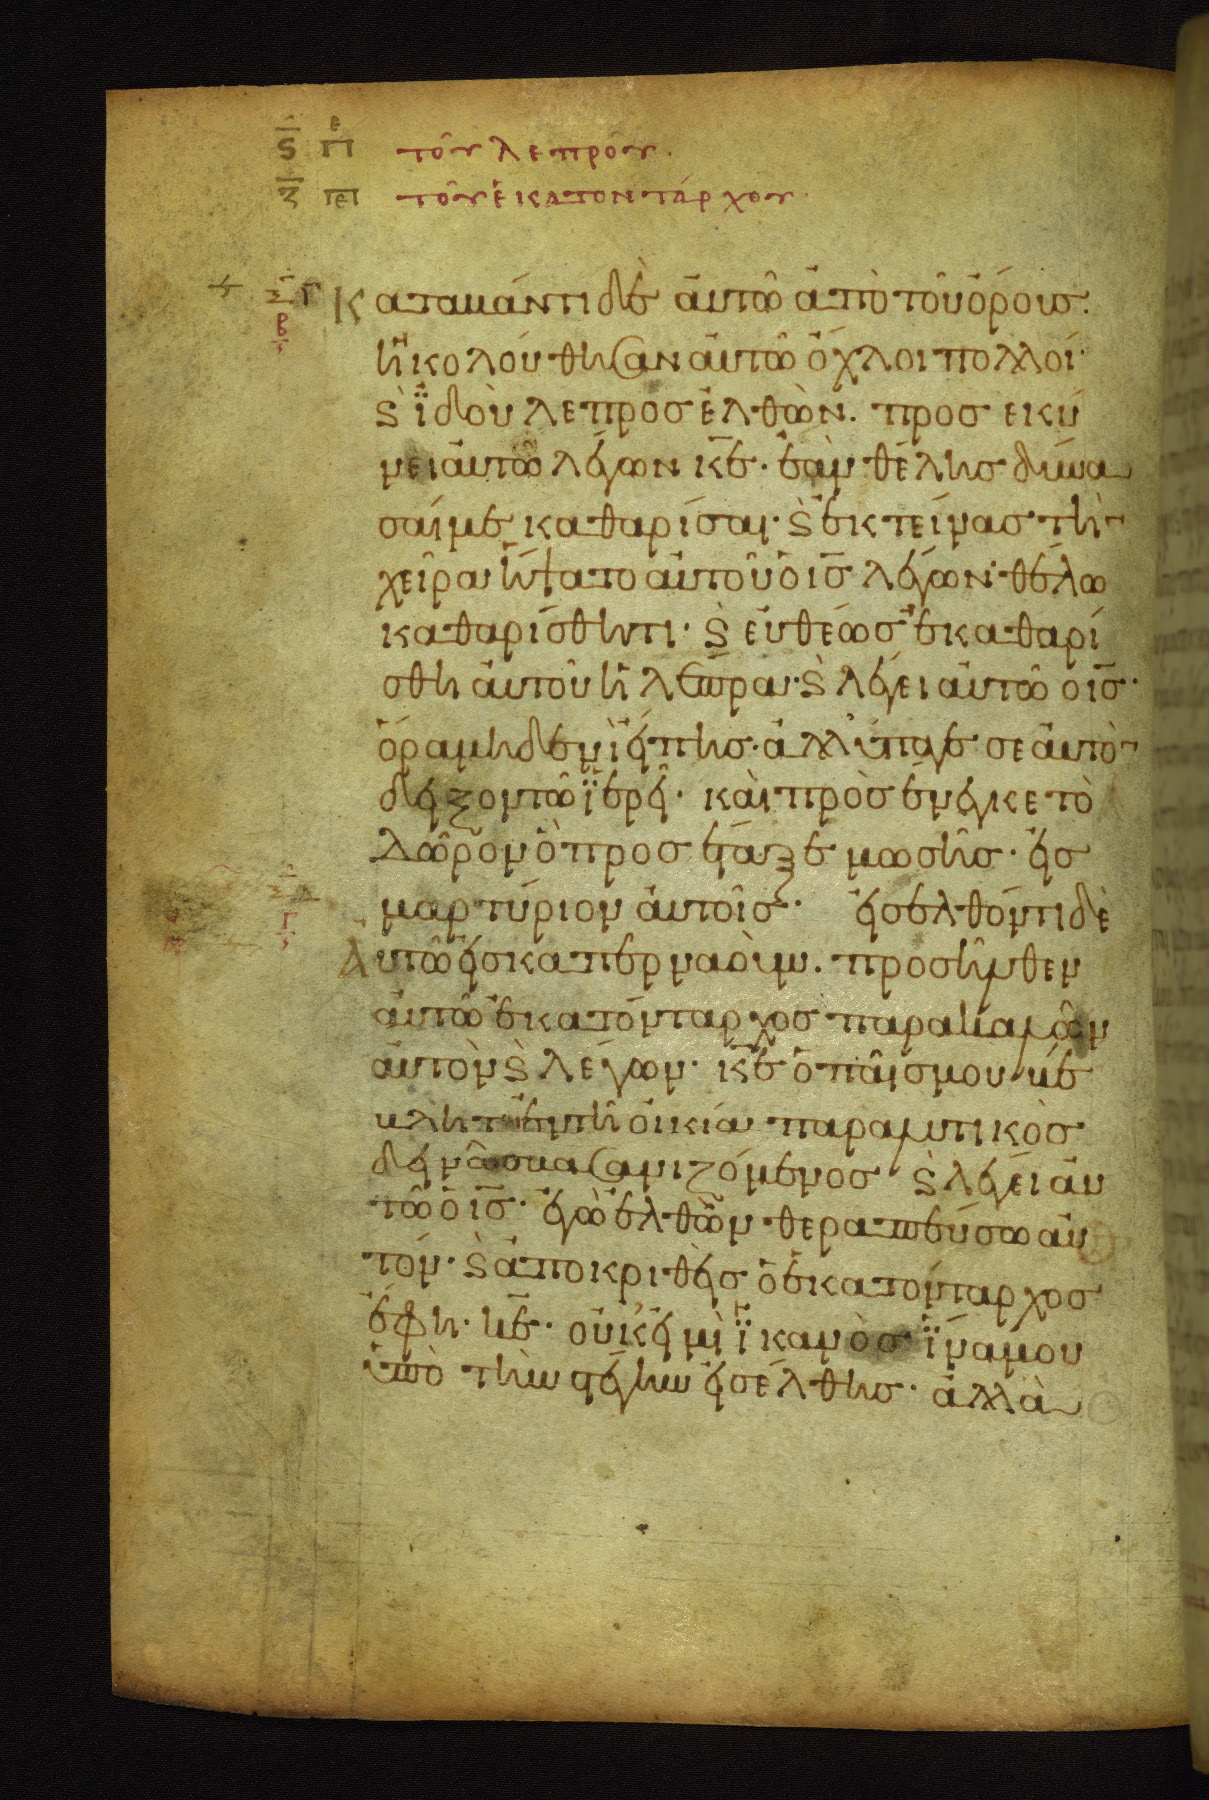 ϛ πε τοῦ λεπροῦ.
ζ πε τοῦ ἑκατοντάρχου.
ξγ Καταβάντι δὲ αὐτῶ ἀπὸ τοῦ ὄρους.
β ἠκολούθησαν αὐτῶ ὄχλοι πολλοί·
ϗ ἰδοὺ λεπρὸς ἐλθὼν. προσεκύ
νει αὐτῶ λέγων κ̅ε̅· ἐὰν θέλης δύνα
σαί με καθαρίσαι· ϗ ἐκτείνας τὴ
χεῖρα ἥψατο αὐτοῦ ὁ ι̅ς̅ λέγων· θέλω
καθαρίσθητι· ϗ εὐθέως ἐκαθαρί
σθη αὐτοῦ ἡ λέπρα· ϗ λέγει αὐτῶ ὁ ι̅ς̅·
ὅρα μηδενὶ εἴπης· ἀλλ' ὕπαγε σεαυτὸ
δεῖξον τῶ ἱερεῖ· καὶ προσένεγκε τὸ
δῶρον ὃ προσέταξε μωσῆς· εἰς
μαρτύριον αὐτοῖς· εἰσελθόντι δὲ
ξδ γ Αὐτῶ εἰς καπερναούμ. προσῆλθεν
αὐτῶ ἑκατόνταρχος παρακαλῶν
αὐτὸν ϗ λέγων· κ̅ε̅ ὁ παῖς μου βέ
βληται ἐν τῆ οἰκία παραλυτικὸς
δεινῶς βασανιζόμενος ϗ λέγει αὐ
τῶ ὁ ι̅ς̅· ἐγὼ ἐλθὼν θεραπεύσω αὐ
τόν· ϗ ἀποκριθεὶς ὁ ἑκατόνταρχος
ἔφη· κ̅ε̅· οὐκ εἰμὶ ἱκανὸς ἵνα μου
ὑπὸ τὴν στέγην εἰσέλθης· ἀλλὰ